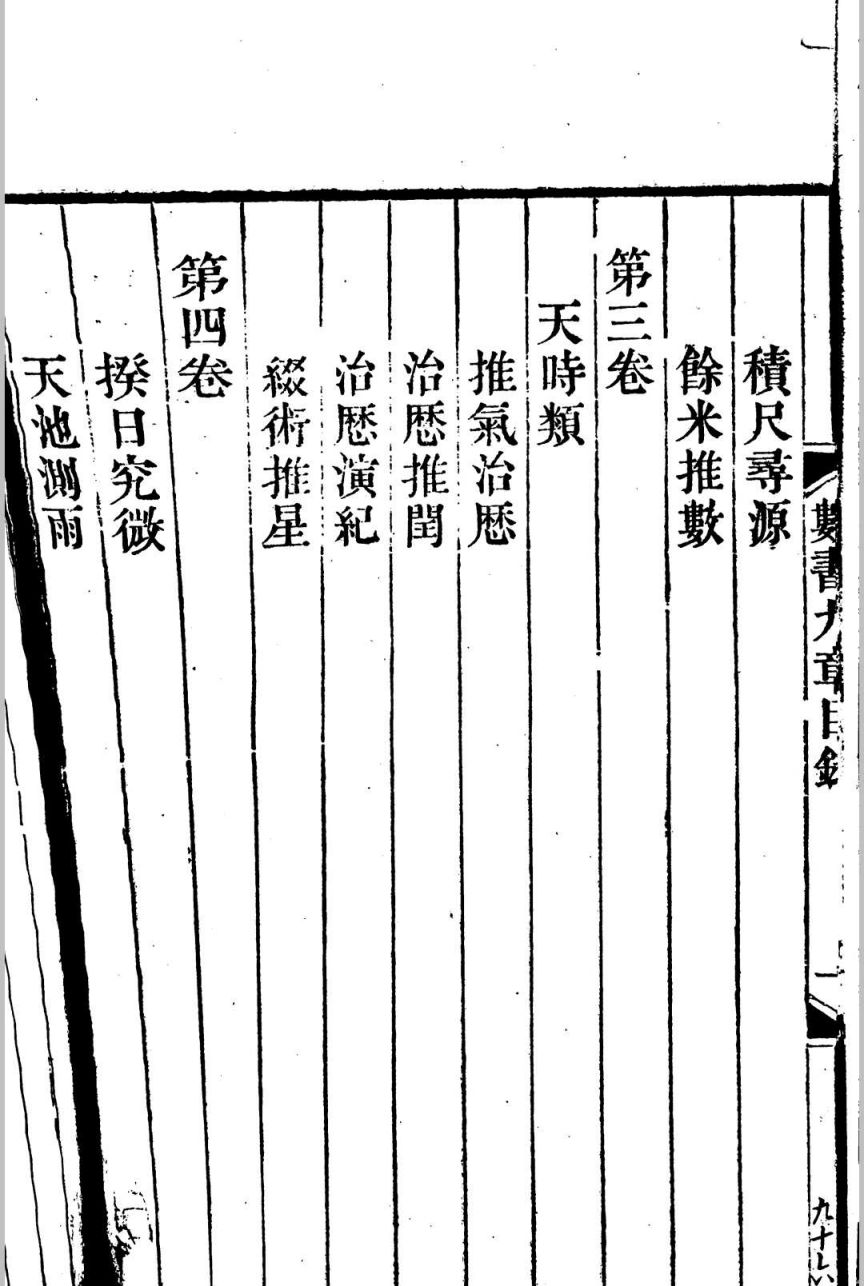 數書九章目錄
一
積尺尋源
餘米推數
第三卷
天時類
推氣治厯
治厯推閏
治厯演紀
綴術推星
第四卷
揆日究微
天池測雨